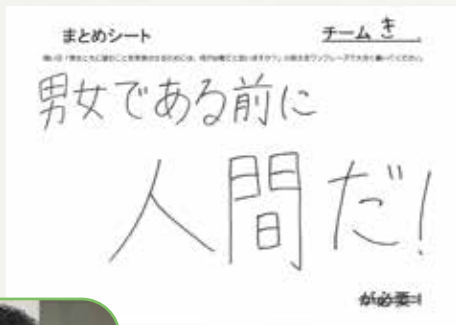 まとめシート
チーム き
男女である前に
人間だ!
が必要!